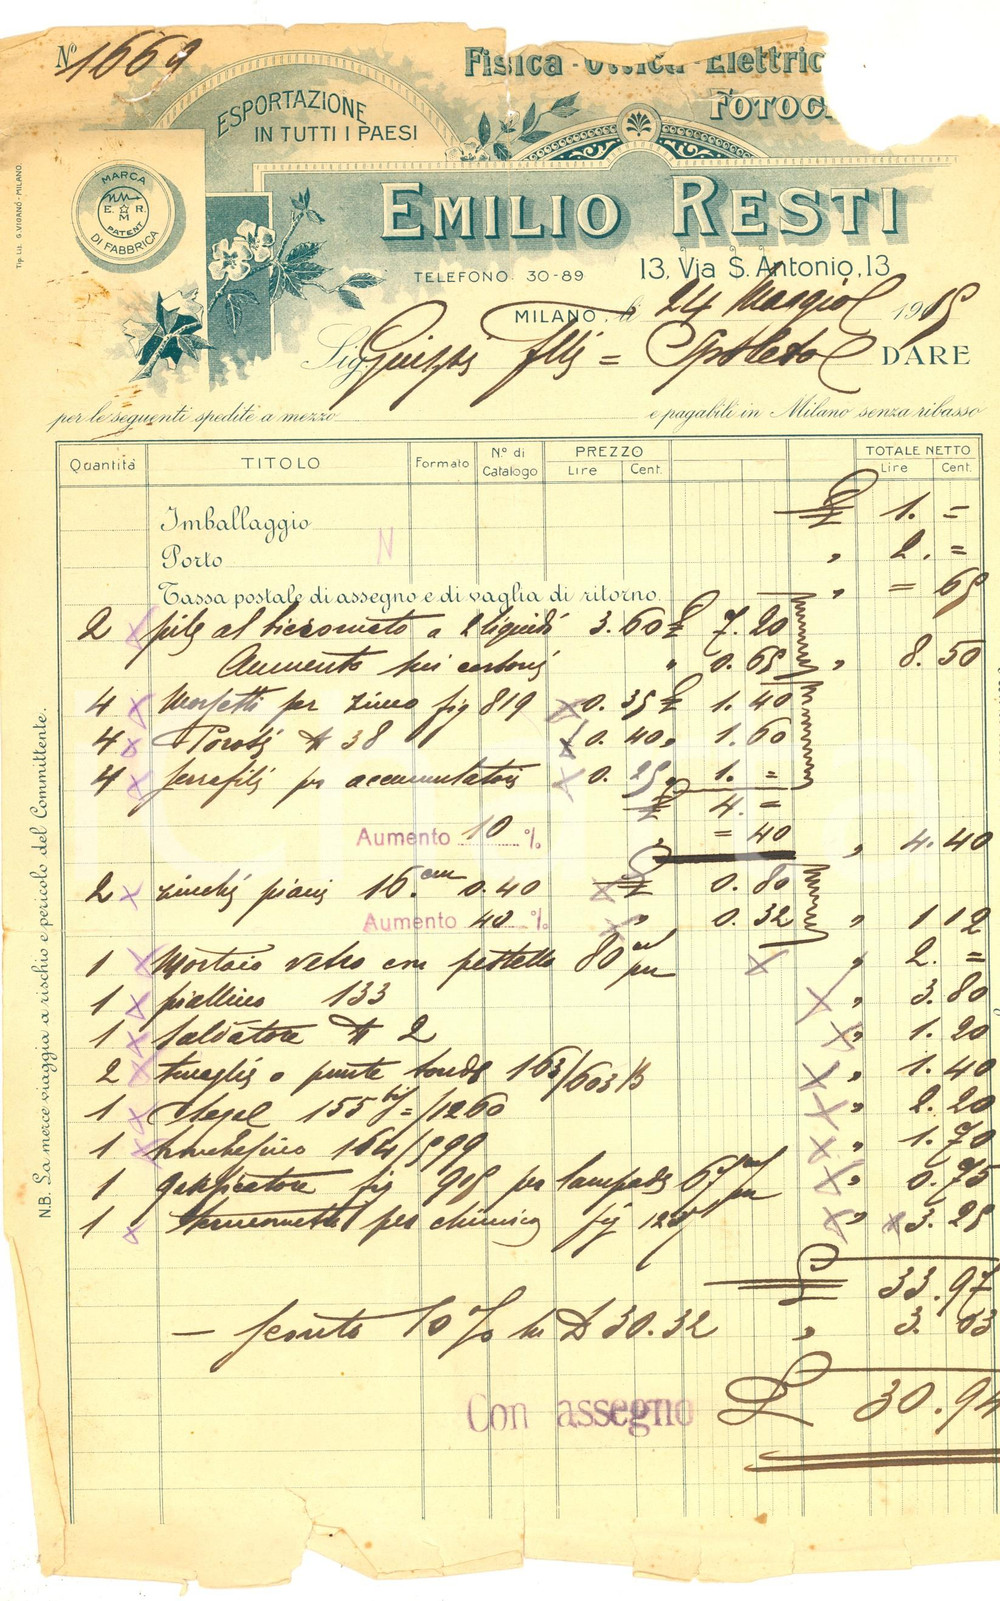 Nº 1669
Fisica - Ottica - Elettric
FOTOG
ESPORTAZIONE
IN TUTTI I PAESI
MARCA
E. R.
M
PATENT
DI FABBRICA
EMILIO RESTI
TELEFONO 30-89
13, Via S. Antonio, 13
MILANO, li 24 Maggio 1915
Sig. Flli = Spoleto DARE
per le seguenti spedite a mezzo e pagabili in Milano senza ribasso
Quantità TITOLO Formato Nº di Catalogo PREZZO Lire Cent. TOTALE NETTO Lire Cent.
Imballaggio £ 1. =
Porto " 2. =
Tassa postale di assegno e di vaglia di ritorno. " = 65
2 pile al bicromato a 2 liquidi 3.60 £ 7.20
Aumento sui carboni " 0.65 " 8.50
4 Morsetti per zinco fig 819 0.35 £ 1.40
4 " Porosi # 38 0.40 " 1.60
4 serrafili per accumulatori 0.25 " 1. =
£ 4. =
Aumento 10 % = 40 " 4.40
2 zinchi piani 16 cm 0.40 £ 0.80
Aumento 40 % " 0.32 " 1 12
1 Mortaio vetro con pestello 80 " 2. =
1 133 " 3.80
1 Saldatore # 2 " 1.20
2 tenaglie a punte tonde 163/603/B " 1.40
1 155 bis = /1260 " 2.20
1 164/599 " 1.70
1 fig 905 per lampade 67 " 0.75
1 per chimica fig " 3.25
£ 33.97
– Sconto 10 % su £ 30.32 " 3. 03
Con assegno £ 30.94
N.B. La merce viaggia a rischio e pericolo del Committente.
Tip. Lit. G. VIGANÒ - MILANO